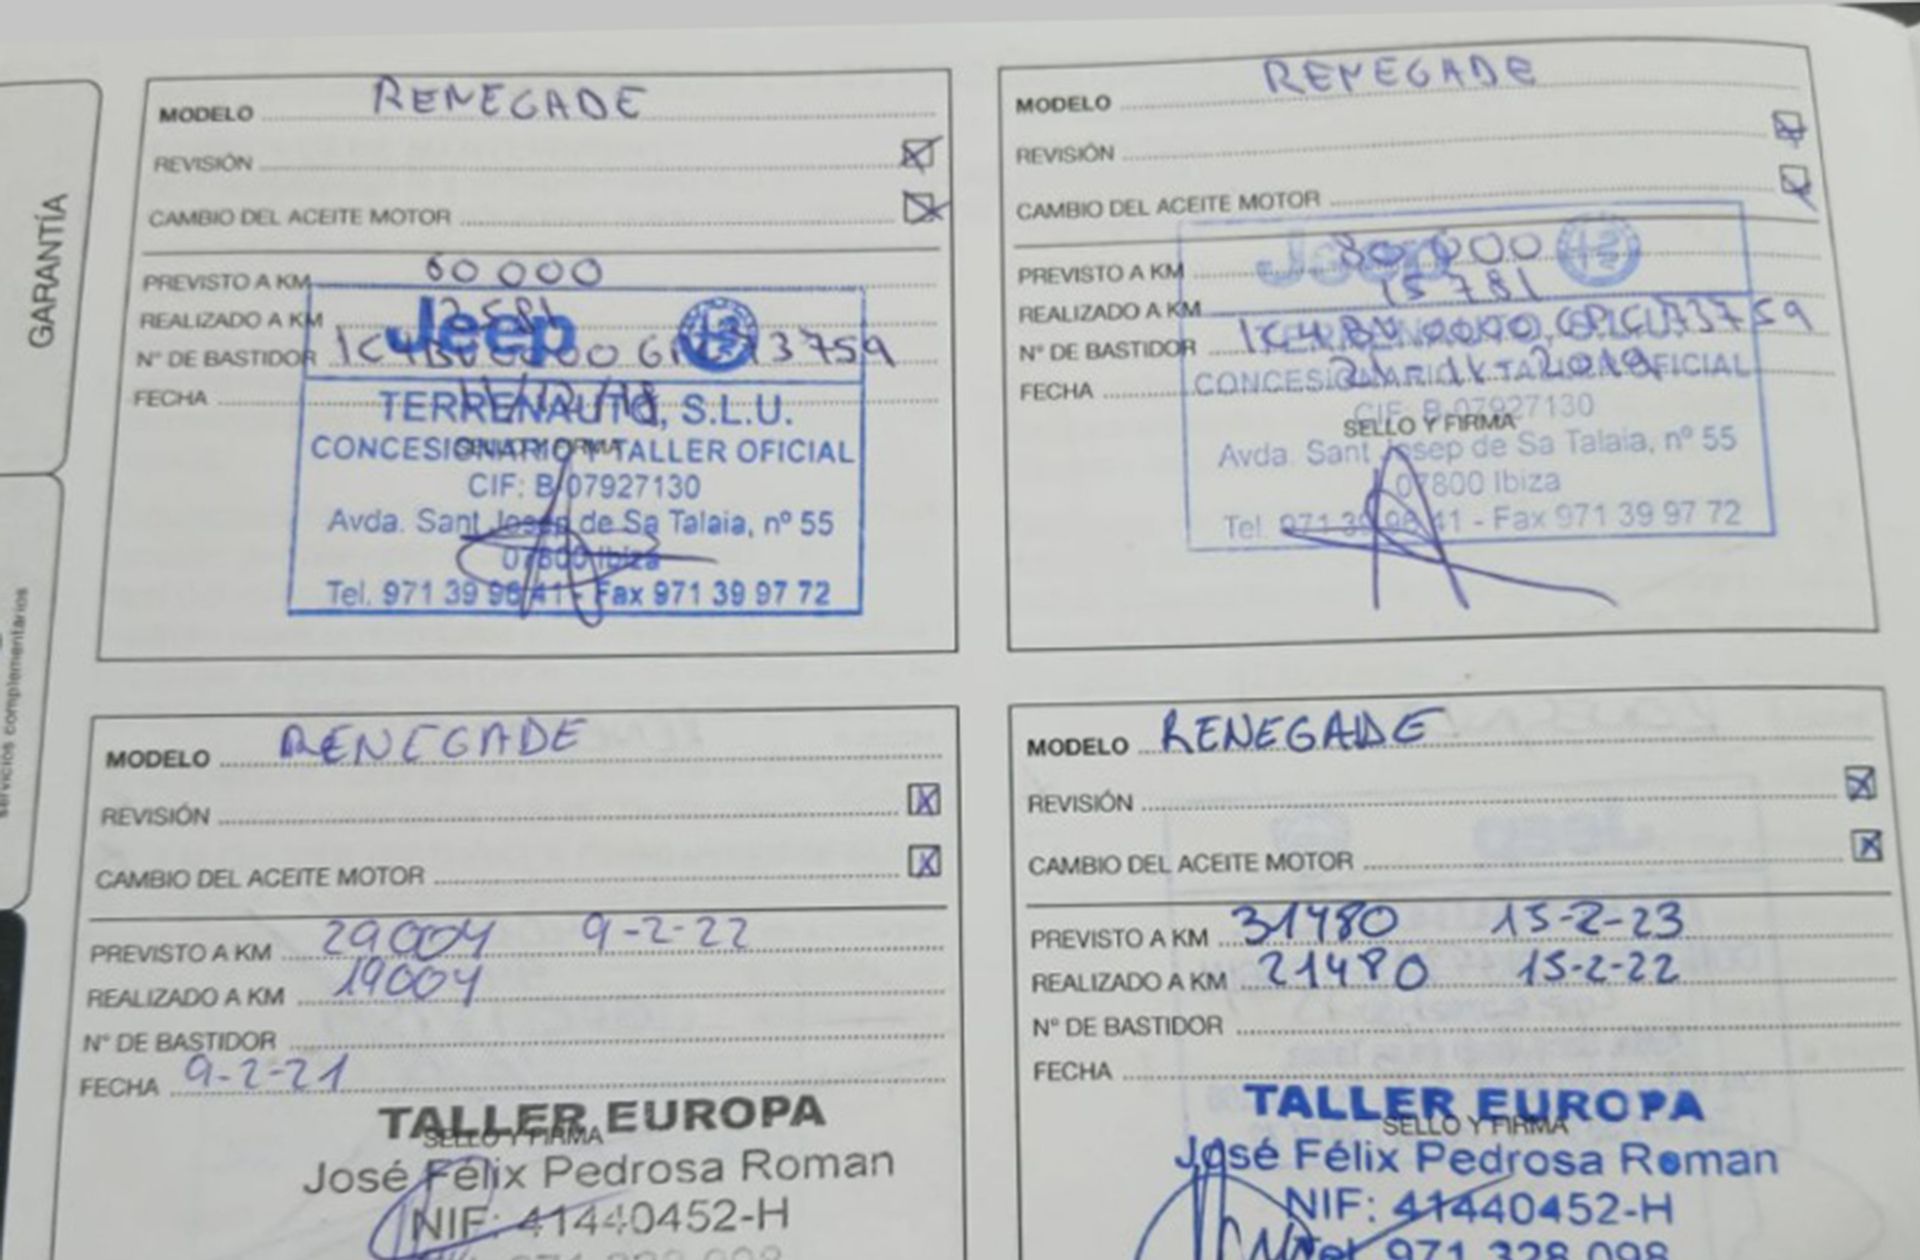 GARANTÍA
servicios complementarios
MODELO RENEGADE
REVISIÓN
CAMBIO DEL ACEITE MOTOR
PREVISTO A KM 60 000
REALIZADO A KM
Nº DE BASTIDOR
FECHA
Jeep
TERRENAUTO, S.L.U.
CONCESIONARIO Y TALLER OFICIAL
SELLO Y FIRMA
CIF: B 07927130
Avda. Sant Josep de Sa Talaia, nº 55
07800 Ibiza
Tel. 971 39 96 41 - Fax 971 39 97 72
MODELO RENEGADE
REVISIÓN
CAMBIO DEL ACEITE MOTOR
Jeep
PREVISTO A KM
REALIZADO A KM 15 781
Nº DE BASTIDOR
TERRENAUTO,
FECHA
CONCESIONARIO Y TALLER OFICIAL
CIF: B 07927130
SELLO Y FIRMA
Avda. Sant Josep de Sa Talaia, nº 55
07800 Ibiza
Tel. 971 39 96 41 - Fax 971 39 97 72
MODELO RENEGADE
REVISIÓN X
CAMBIO DEL ACEITE MOTOR X
PREVISTO A KM 29004 9-2-22
REALIZADO A KM 19004
Nº DE BASTIDOR
FECHA 9-2-21
TALLER EUROPA
SELLO Y FIRMA
José Félix Pedrosa Roman
NIF: 41440452-H
MODELO RENEGADE
REVISIÓN X
CAMBIO DEL ACEITE MOTOR X
PREVISTO A KM 31480 15-2-23
REALIZADO A KM 21480 15-2-22
Nº DE BASTIDOR
FECHA
TALLER EUROPA
SELLO Y FIRMA
José Félix Pedrosa Roman
NIF: 41440452-H
Tel. 971 328 098